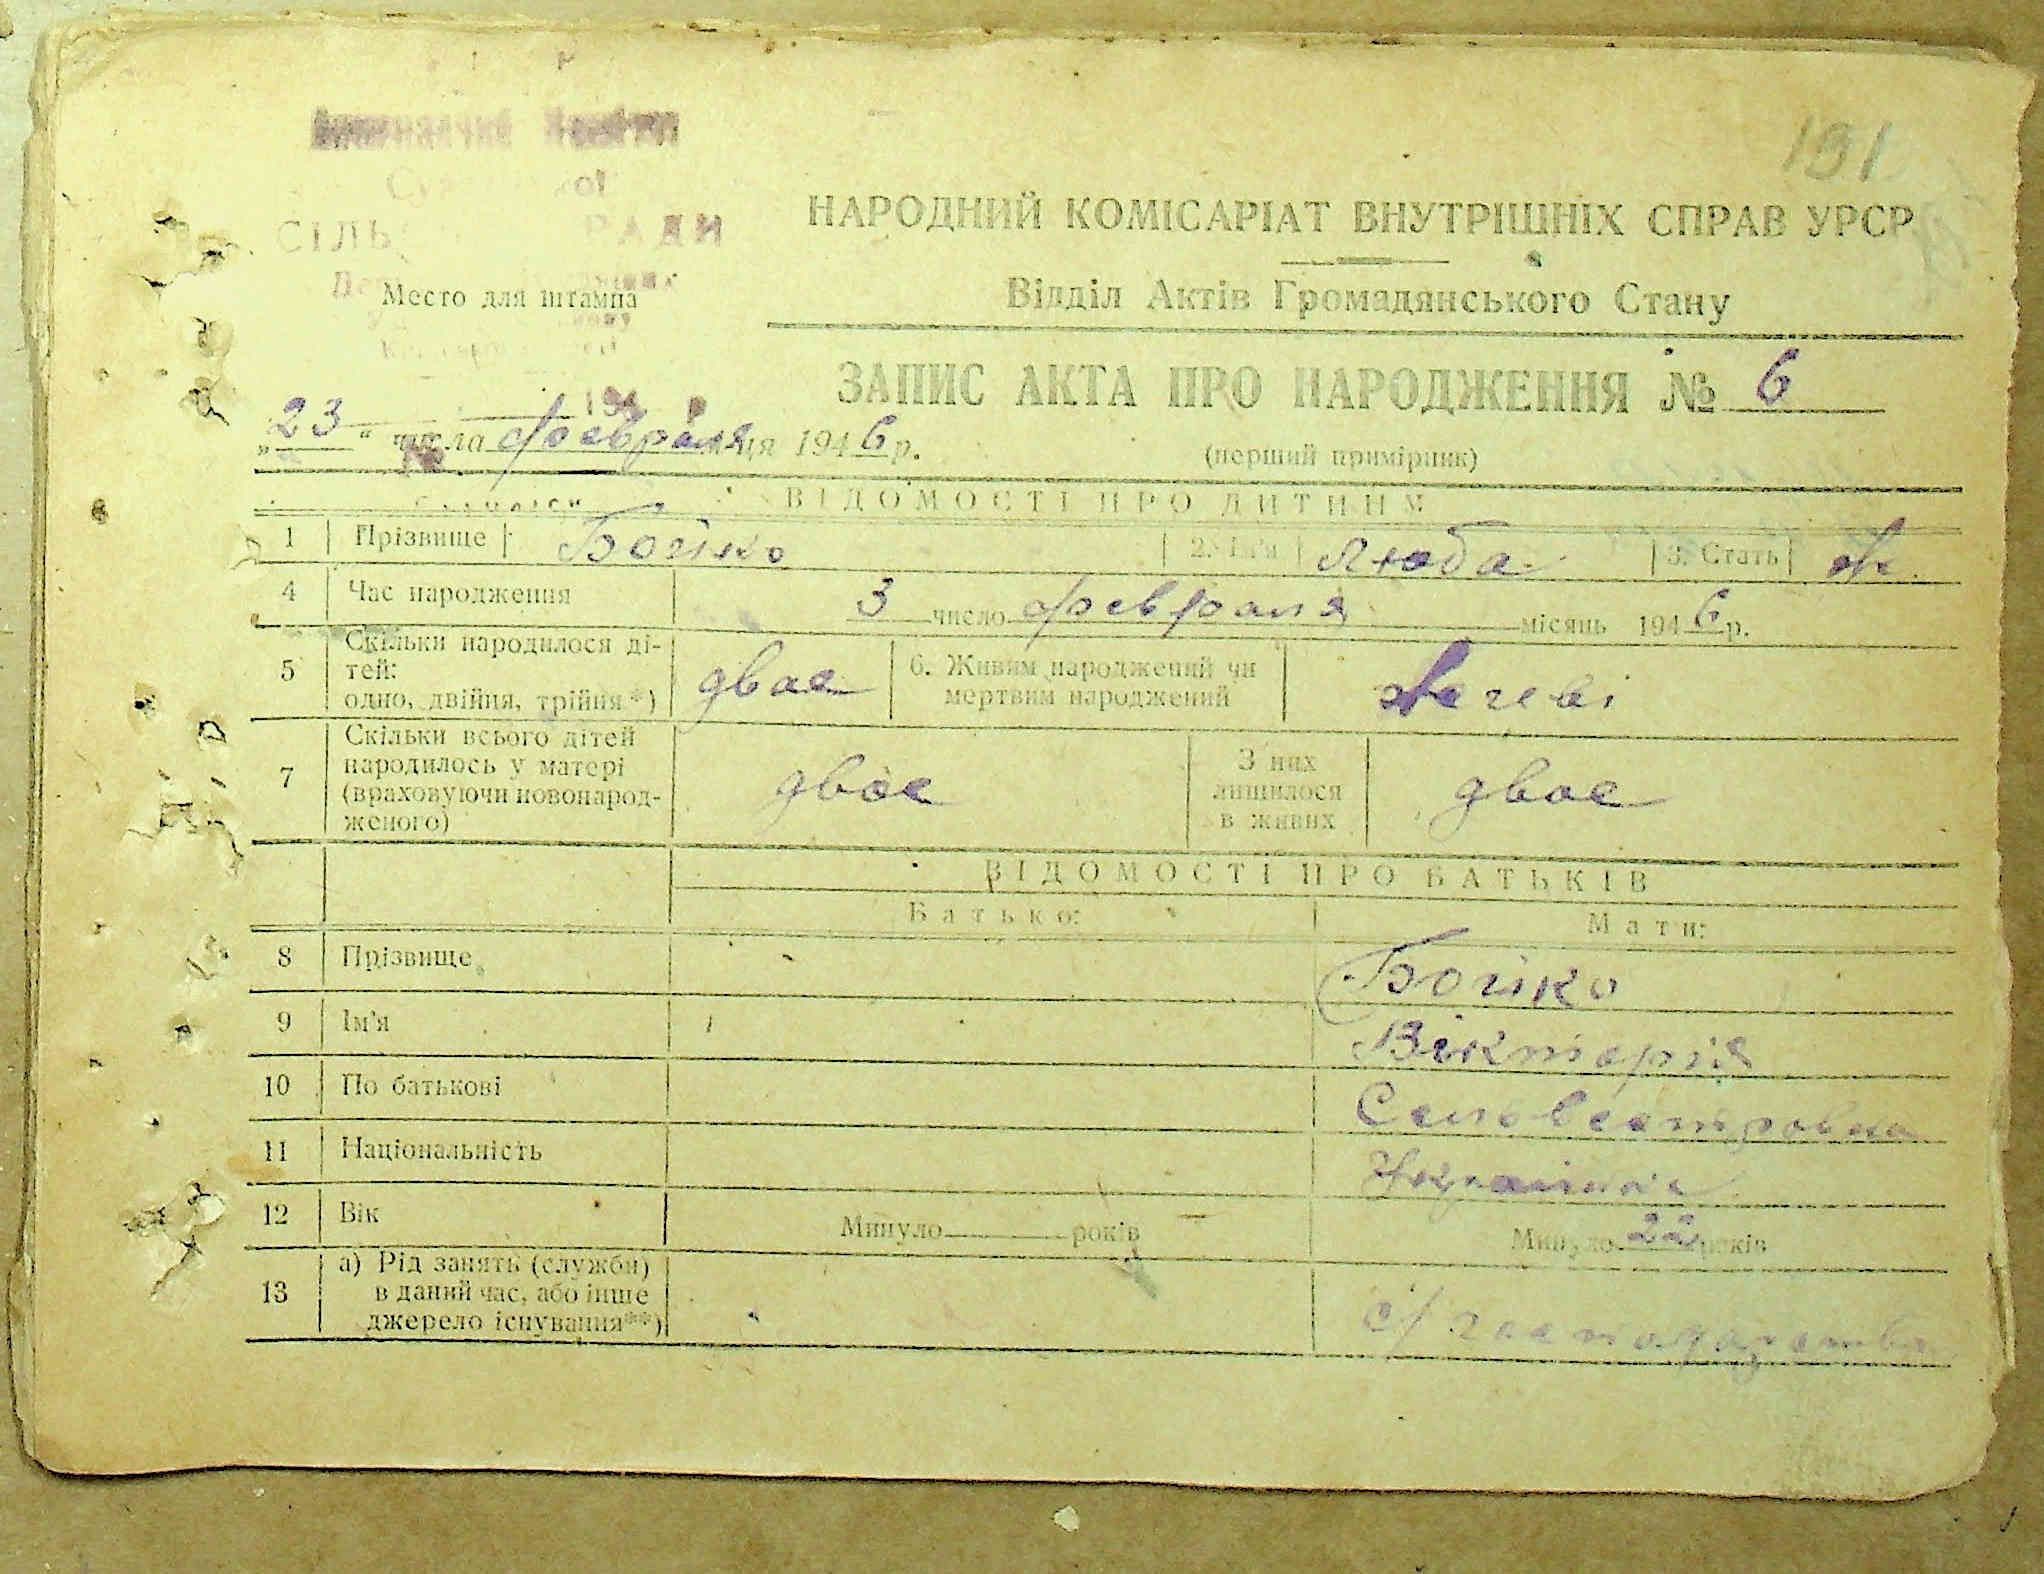 191
СІЛЬ РАДИ
НАРОДНИЙ КОМІСАРІАТ ВНУТРІШНІХ СПРАВ УРСР
Место для штампа
Відділ Актів Громадянського Стану
ЗАПИС АКТА ПРО НАРОДЖЕННЯ № 6
„23“ числа февраля ця 1946 р.
(перший примірник)
ВІДОМОСТІ ПРО ДИТИНУ
1 Прізвище Бойко 2. Ім'я Люба 3. Стать ж
4 Час народження 3 число февраля місяць 1946 р.
5 Скільки народилося ді-
тей:
одно, двійня, трійня*) двое 6. Живим народжений чи
мертвим народжений
7 Скільки всього дітей
народилось у матері
(враховуючи новонарод-
женого) двое З них
лишилося
в живих двое
ВІДОМОСТІ ПРО БАТЬКІВ
Батько: Мати:
8 Прізвище Бойко
9 Ім'я Вікторія
10 По батькові
11 Національність Українка
12 Вік Минуло років Минуло 22 років
13 а) Рід занять (служби)
в даний час, або інше
джерело існування**)